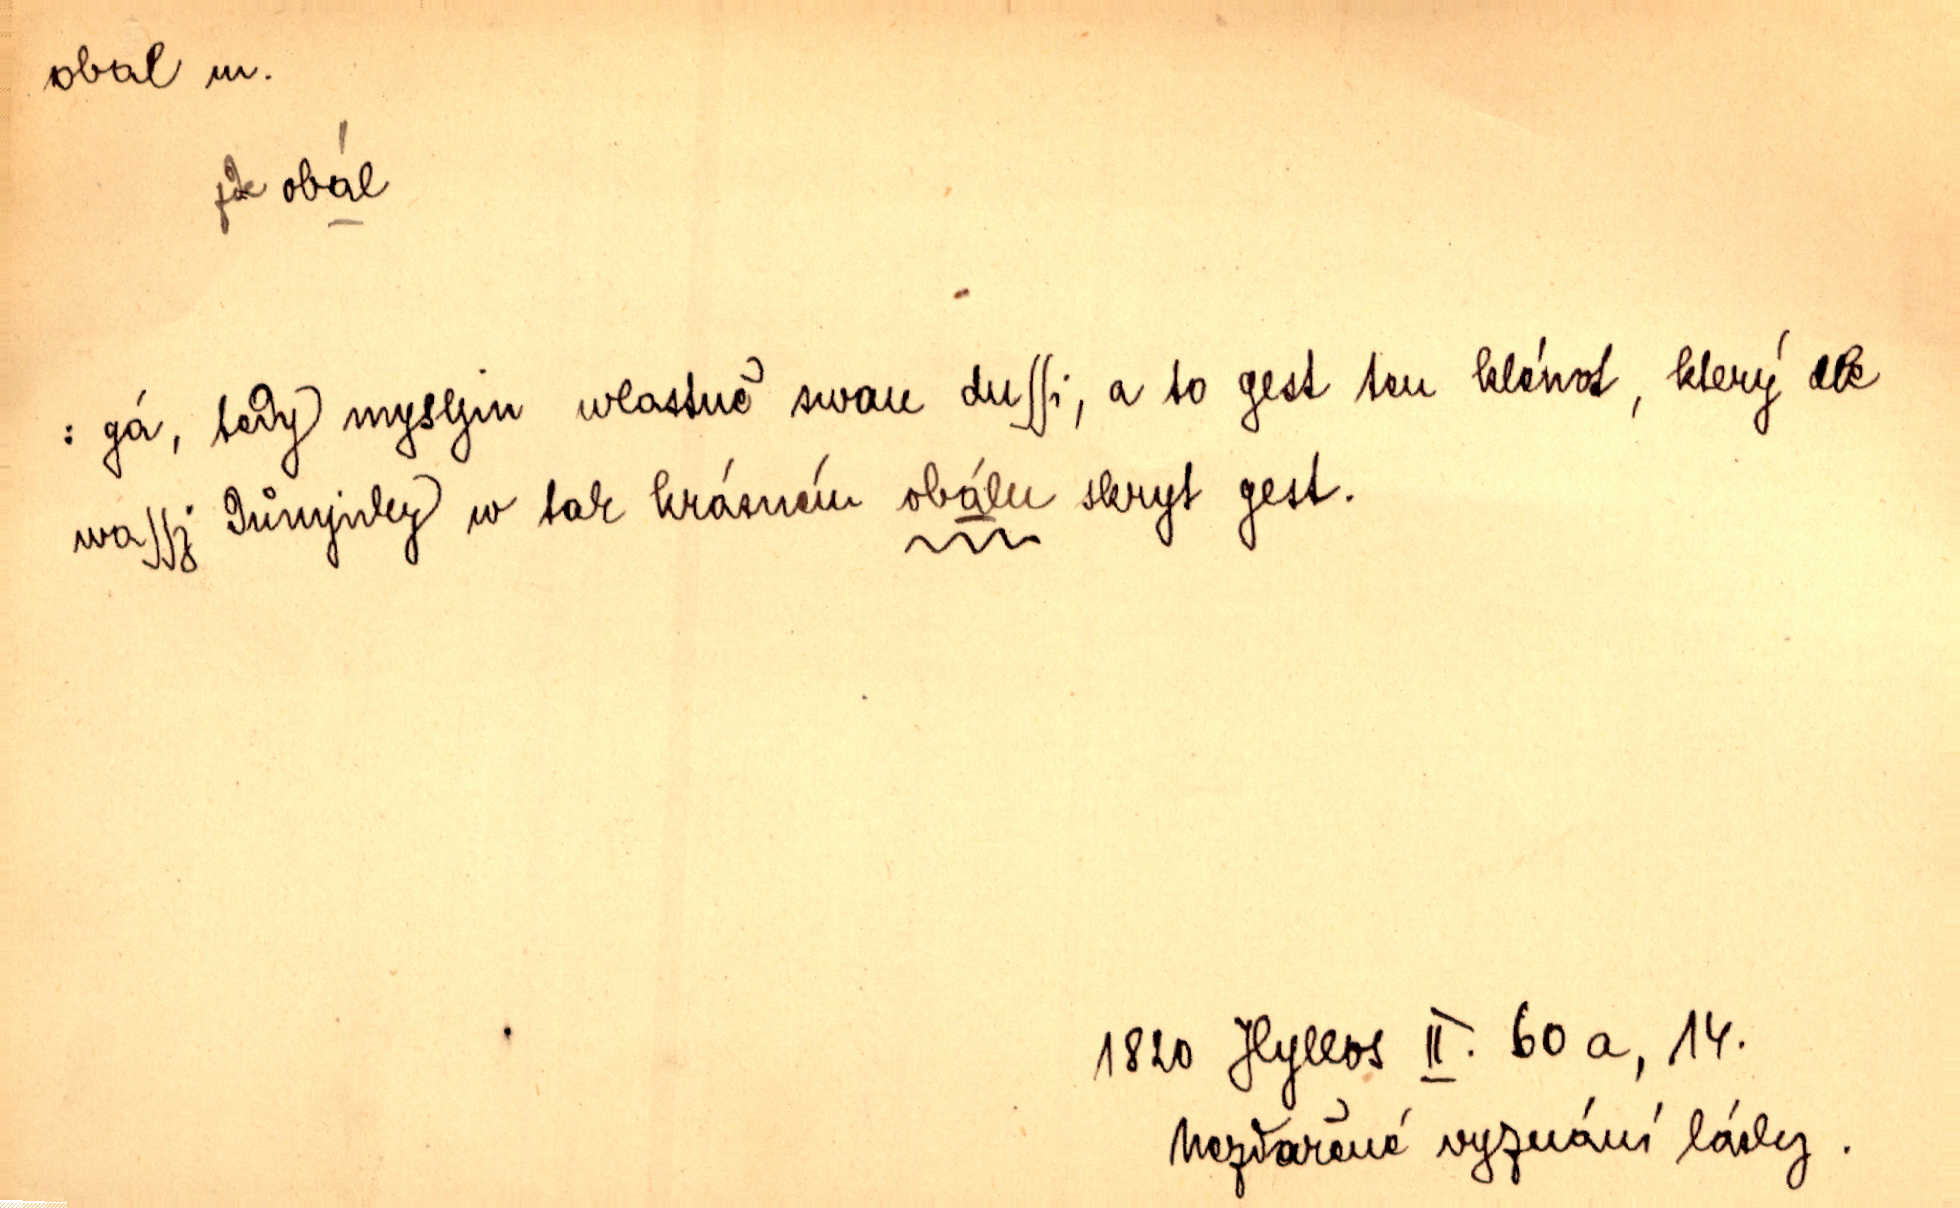 obal m.
zde obál
: gá, tedy mysljm wlastně swau dussi, a to gest ten klénot, který dle
wassj Důmjnky w tak krásném obálu skryt gest.
1820 Hyllos II. 60 a, 14.
Nezdařené vyznání lásky.